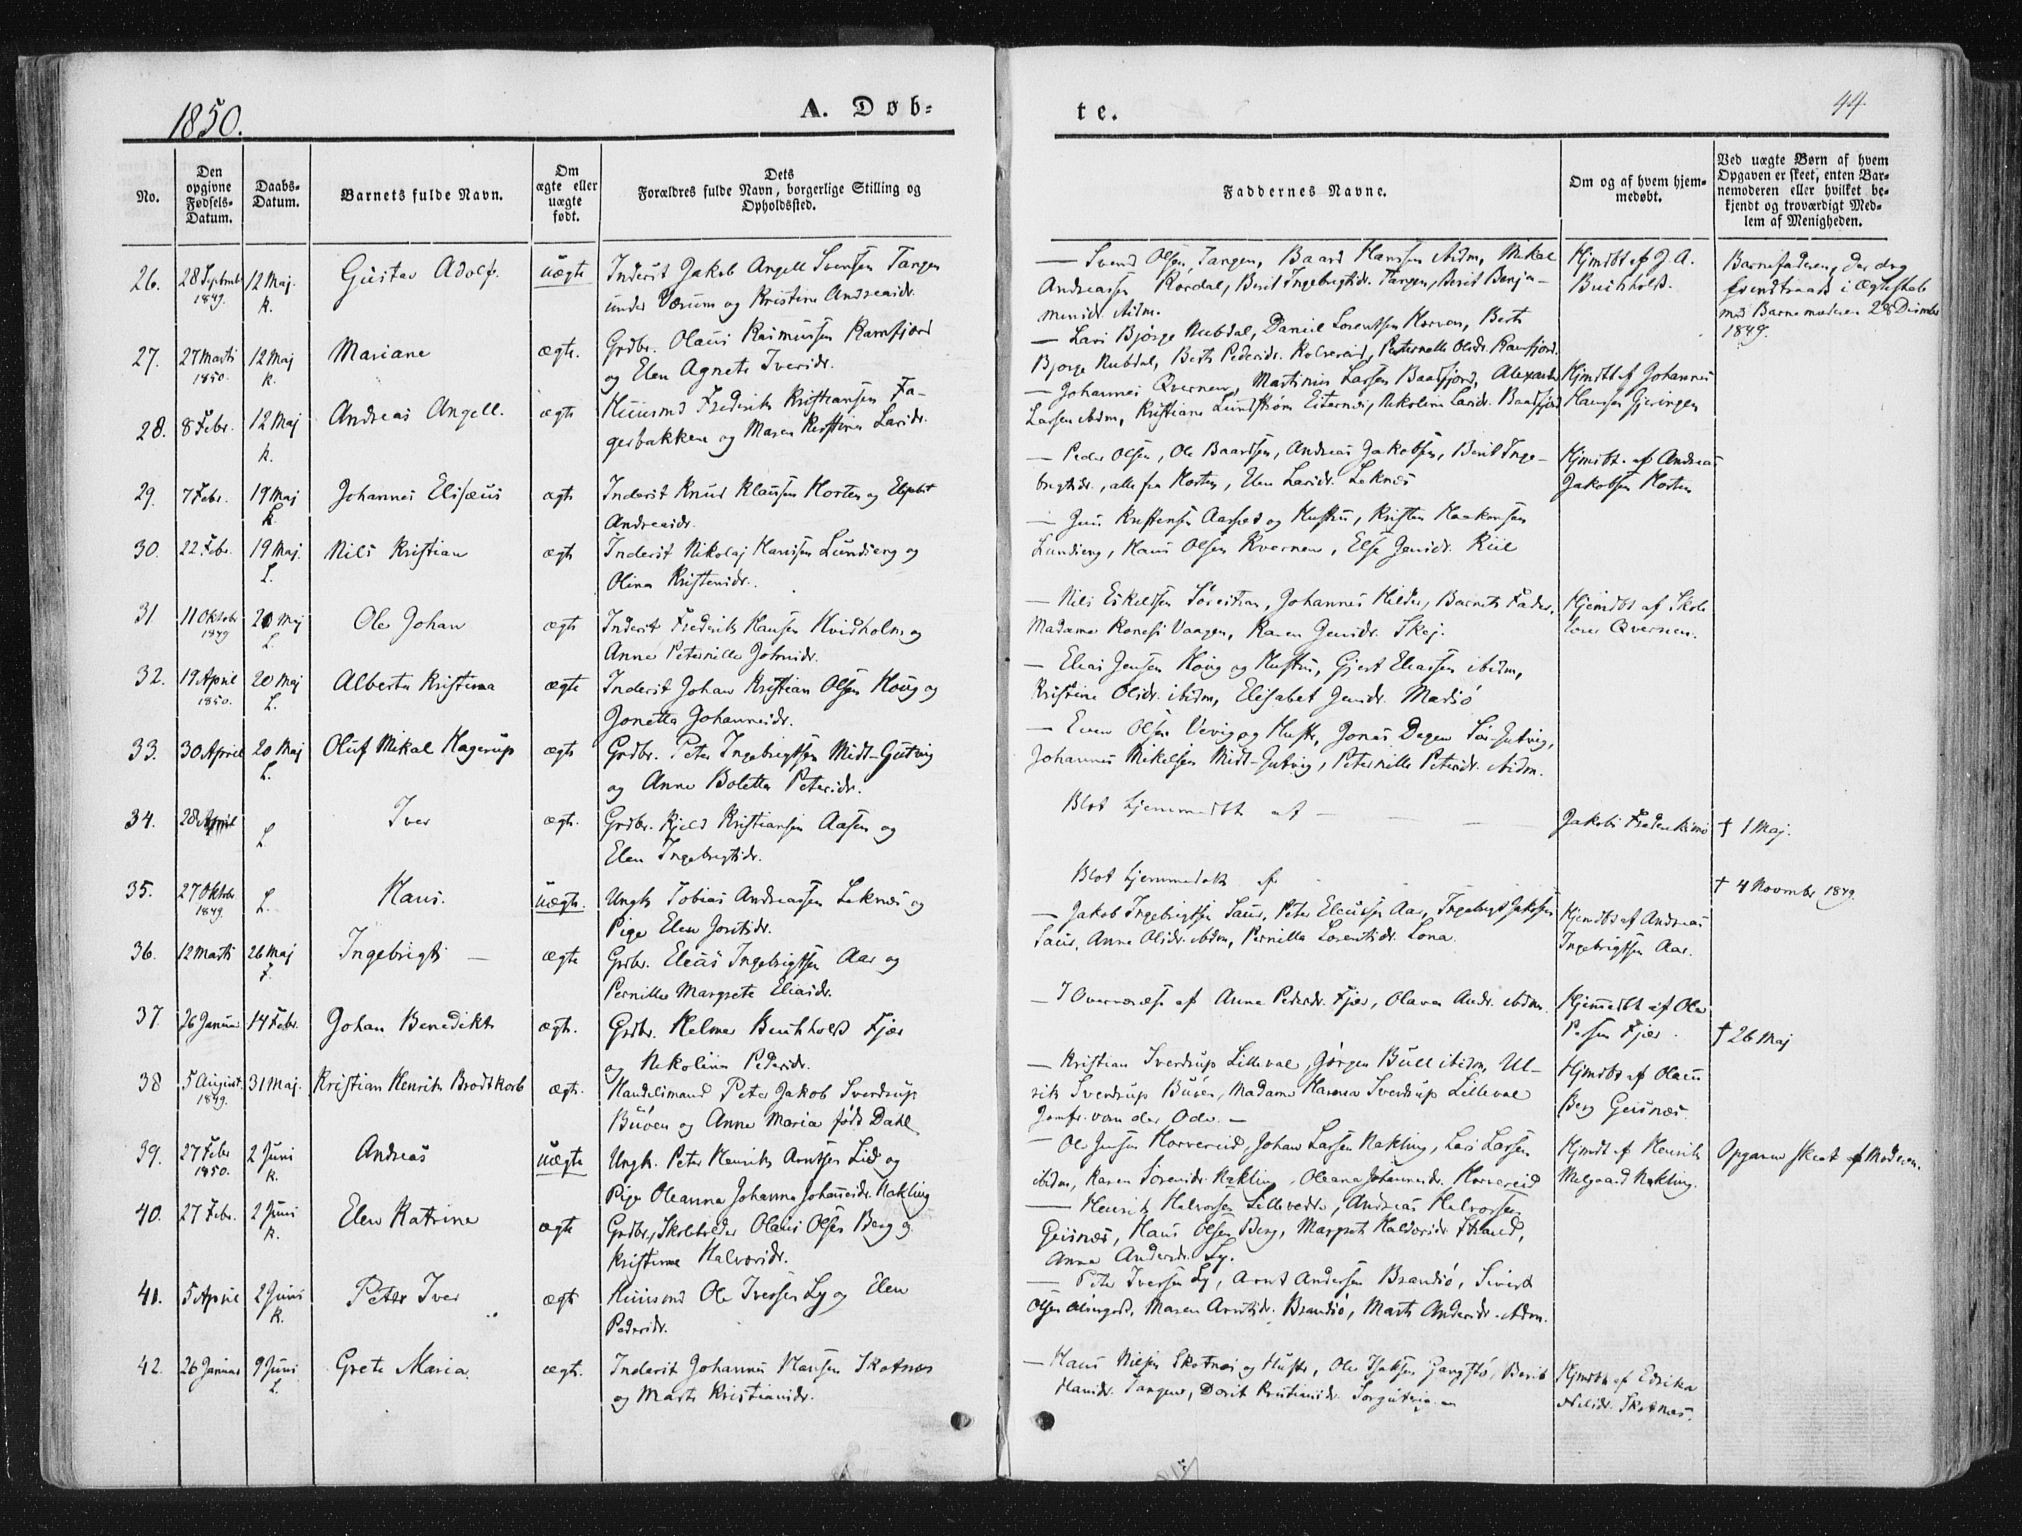 1850.
A. Døb-
te.
44
No.
Den opgivne Fødsels-Datum.
Daabs-Datum.
Barnets fulde Navn.
Om ægte eller uægte født.
Dets Forældres fulde Navn, borgerlige Stilling og Opholdssted.
Faddernes Navne.
Om og af hvem hjem-medøbt.
Ved uægte Børn af hvem Opgaven er skeet, enten Bar-nemoderen eller hvilket be-kjendt og troværdigt Med-lem af Menigheden.
26. 28 Septembr 1849. 12 Maj. K. Gustav Adolf. uægte
Inderst Jakob Angell Svensen Tangen
under Værum og Kristine Andreasdr.
— Svend Olsen Tangen, Baard Hansen ibidm, Mikal
Andreassen Rordal, Berit Ingebrigtsdr. Tangen, Berit Benja-
minsdr. ibidm.
Hjmdbt af J. A.
Buchholdt.
Barnefaderen, der drog
i Ægteskab
med Barnemoderen 28 Decimbr
1849.
27. 27 Marts 1850. 12 Maj K. Mariane ægte.
Grdbr. Olaus Rasmussen Ramfjord
og Elen Agnete Iversdr.
— Lars Bjørge Nubdal, Daniel Lorentsen Horven, Berit
Bjørge Nubdal, Berit Pedersdr. Kolvereid, Peternelle Olsdr. Ramfjord.
28. 8 Febr. 12 Maj K. Andreas Angell. ægte
Huusmd Frederik Kristiansen Fa-
gerbakken og Maren Kirstine Larsdr.
— Johannes Qvernen, Martinus Larsen Baadfjord, Alexander
Larsen ibidm, Kristiane Lundstrøm Eiternes, Nikoline Larsdr. Baadfjord
Hjmdbt af Johannes
Hansen Gjeringen
29. 7 Febr. 19 Maj K. Johannes Elisæus ægte
Inderst Knud Klausen Horten og Elisabet
Andreasdr.
— Peder Olsen, Ole Baardsen, Andreas Jakobsen, Berit Inge-
brigtsdr., alle fra Horten, Elen Larsdr. Leknes
Hjmdbt. af Andreas
Jakobsen Horten
30. 22 Febr. 19 Maj. L. Nils Kristian ægte
Inderst Nikolaj Hansen Lundseng og
Olina Kristensdr.
— Jens Kristensen Aarsed og Hustru, Kristen Haakonsen
Lundseng, Hans Olsen Kvernen, Else Jensdr. Kiil
31. 11 Oktobr 1849 20 Maj L. Ole Johan ægte
Inderst Frederik Hansen Hvidholm og
Anne Peternille Johnsdr.
— Nils Eskildsen Sørestran, Johannes Kilder, Barnets Fader,
Madame Vangen, Karen Jensdr. Skej.
Hjemdbt af Skole
lærer Qvernen.
32. 19 April 1850. 20 Maj L. Alberte Kristina ægte
Inderst Johan Kristian Olsen Houg og
Jonetta Johannesdr.
— Elias Jensen Houg og Hustru, Gjert Eliassen ibidm,
Kristine Olsdr. ibidm, Elisabet Jensdr. Madsø
33. 30 April 20 Maj L. Oluf Mikal Hagerup ægte
Grdbr. Peter Ingebrigtsen Midt-Gutvig
og Anne Boletta Petersdr.
— Even Olsen Vevig og Hustr., Jonas Degen Sør-Gutvig,
Johannes Mikelsen Midt-Gutvig, Peternille Petersdr. ibidm.
34. 28 April L. Iver ægte.
Grdbr. Kjeld Kristiansen Aasen og
Elen Ingebrigtsdr.
Blot hjemmedbt af — —
† 1 Maj.
35. 27 Oktobr 1849. L. Hans. uægte.
Ungk. Tobias Andreassen Leknes og
Pige Elen Jonsdr.
Blot hjemmedøbt af
† 4 Novembr 1849.
36. 12 Marts 26 Maj F. Ingebrigt — ægte
Grdbr. Eleas Ingebrigtsen Aar og
Pernille Margrete Eliasdr.
— Jakob Ingebrigtsen Saur, Peter Eleassen Aar, Ingebrigt Jakobsen
Saur, Anne Olsdr. ibidm, Pernille Lorentsdr. Lona.
Hjemdbt af Andreas
Ingebrigtsen Aar.
37. 26 Januar 14 Febr. Johan Benedikt ægte.
Grdbr. Helmer Buchholdt Fjær
og Nikolina Pedersdr.
— I Overværelse af Anne Pedersdr. Fjær, Olava Andr. ibidm.
Hjemmedbt af Ole
Fjær.
† 26 Maj
38 5 August. 1849. 31 Maj. Kristian Henrik Brodtkorb ægte.
Handelsmand Peter Jakob Sverdrup
Buøen og Anne Maria født Dahl
— Kristian Sverdrup Lilleval, Jørgen Bull ibidm, Ul-
rik Sverdrup Buøen, Madame Harma Sverdrup Lilleval
Jomfr. van der Ode. —
Hjmdbt af Olaus
Berg Geisnæs.
39. 27 Febr 1850. 2 Juni K. Andreas uægte
Ungk. Peter Henrik Arntsen Lid og
Pige Oleanna Johanna Johannesdr. Nakling
— Ole Jensen Horvereid, Johan Larsen Nakling, Lars Larsen
ibidm, Karen Sørensdr. Nakling, Oleana Johannesdr. Horvereid
Hjmdt af Henrik
Melgaard Nakling.
Opgaven skeet af Moderen.
40. 27 Febr. 2 Juni K. Elen Katrine ægte
Grdbr., Skoleholder Olaus Olsen Berg og
Kristianna Halvorsdr.
— Henrik Halvorsen Lillevedde, Andreas Halvorsen
Geisnæs, Hans Olsen Berg, Margrete Haldorsdr. Strand,
Anne Andersdr. Ly.
41. 5 April 2 Juni K. Peter Iver ægte
Huusmd Ole Iversen Ly og Elen
Pedersdr.
— Peter Iversen Ly, Arnt Andersen Brandsø, Sivert
Olsen, Maren Arntsdr. Brandsø, Marte Andersdr. ibidm.
42. 26 Januar 9 Juni L. Grete Maria. ægte.
Inderst Johannes Hansen Skotnes
og Marte Kristiansdr.
— Hans Nilsen Skotnes og Hustr, Ole Isaksen Gangstø, Berit
Hansdr. Tangen, Dorit Kristiansdr.
Hjmdbt af Edrika
Nilsdr. Skotnes.